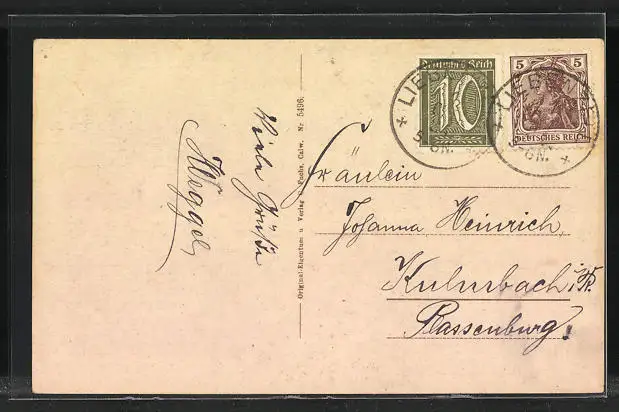 Viele Grüße
Original-Eigentum u. Verlag C. Fuchs, Calw. Nr. 5496.
Deutsches Reich
10
5
5
DEUTSCHES REICH
Fräulein
Johanna Heinrich,
Kulmbach
Plassenburg.